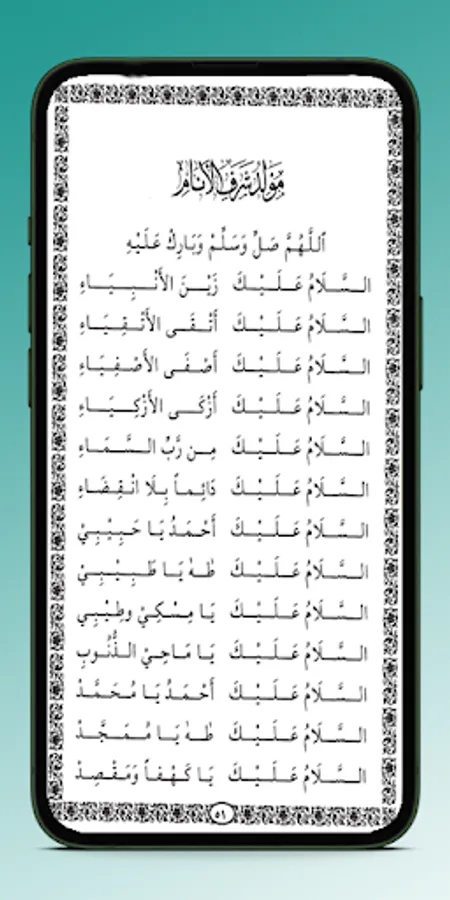 مَوْلِدُ شَرَفِ الْأَنَامِ
اَللَّهُمَّ صَلِّ وَسَلِّمْ وَبَارِكْ عَلَيْهِ
السَّلَامُ عَلَيْكَ زَيْنَ الأَنْبِيَاءِ
السَّلَامُ عَلَيْكَ أَتْقَى الأَتْقِيَاءِ
السَّلَامُ عَلَيْكَ أَصْفَى الأَصْفِيَاءِ
السَّلَامُ عَلَيْكَ أَزْكَى الأَزْكِيَاءِ
السَّلَامُ عَلَيْكَ مِن رَّبِّ السَّمَاءِ
السَّلَامُ عَلَيْكَ دَائِماً بِلَا انْقِضَاءِ
السَّلَامُ عَلَيْكَ أَحْمَدُ يَا حَبِيْبِيْ
السَّلَامُ عَلَيْكَ طٰهٰ يَا طَبِيْبِيْ
السَّلَامُ عَلَيْكَ يَا مِسْكِيْ وطِيْبِي
السَّلَامُ عَلَيْكَ يَا مَاحِيْ الذُّنُوبِ
السَّلَامُ عَلَيْكَ أَحْمَدُ يَا مُحَمَّدْ
السَّلَامُ عَلَيْكَ طٰهٰ يَا مُمَجَّدْ
السَّلَامُ عَلَيْكَ يَا كَهْفاً وَمَقْصِدْ
٥٩